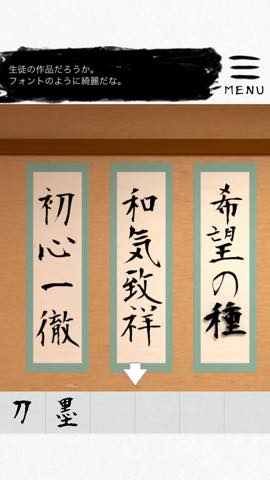 生徒の作品だろうか。
フォントのように綺麗だな。
MENU
希望の種
和気致祥
初心一徹
刀 墨